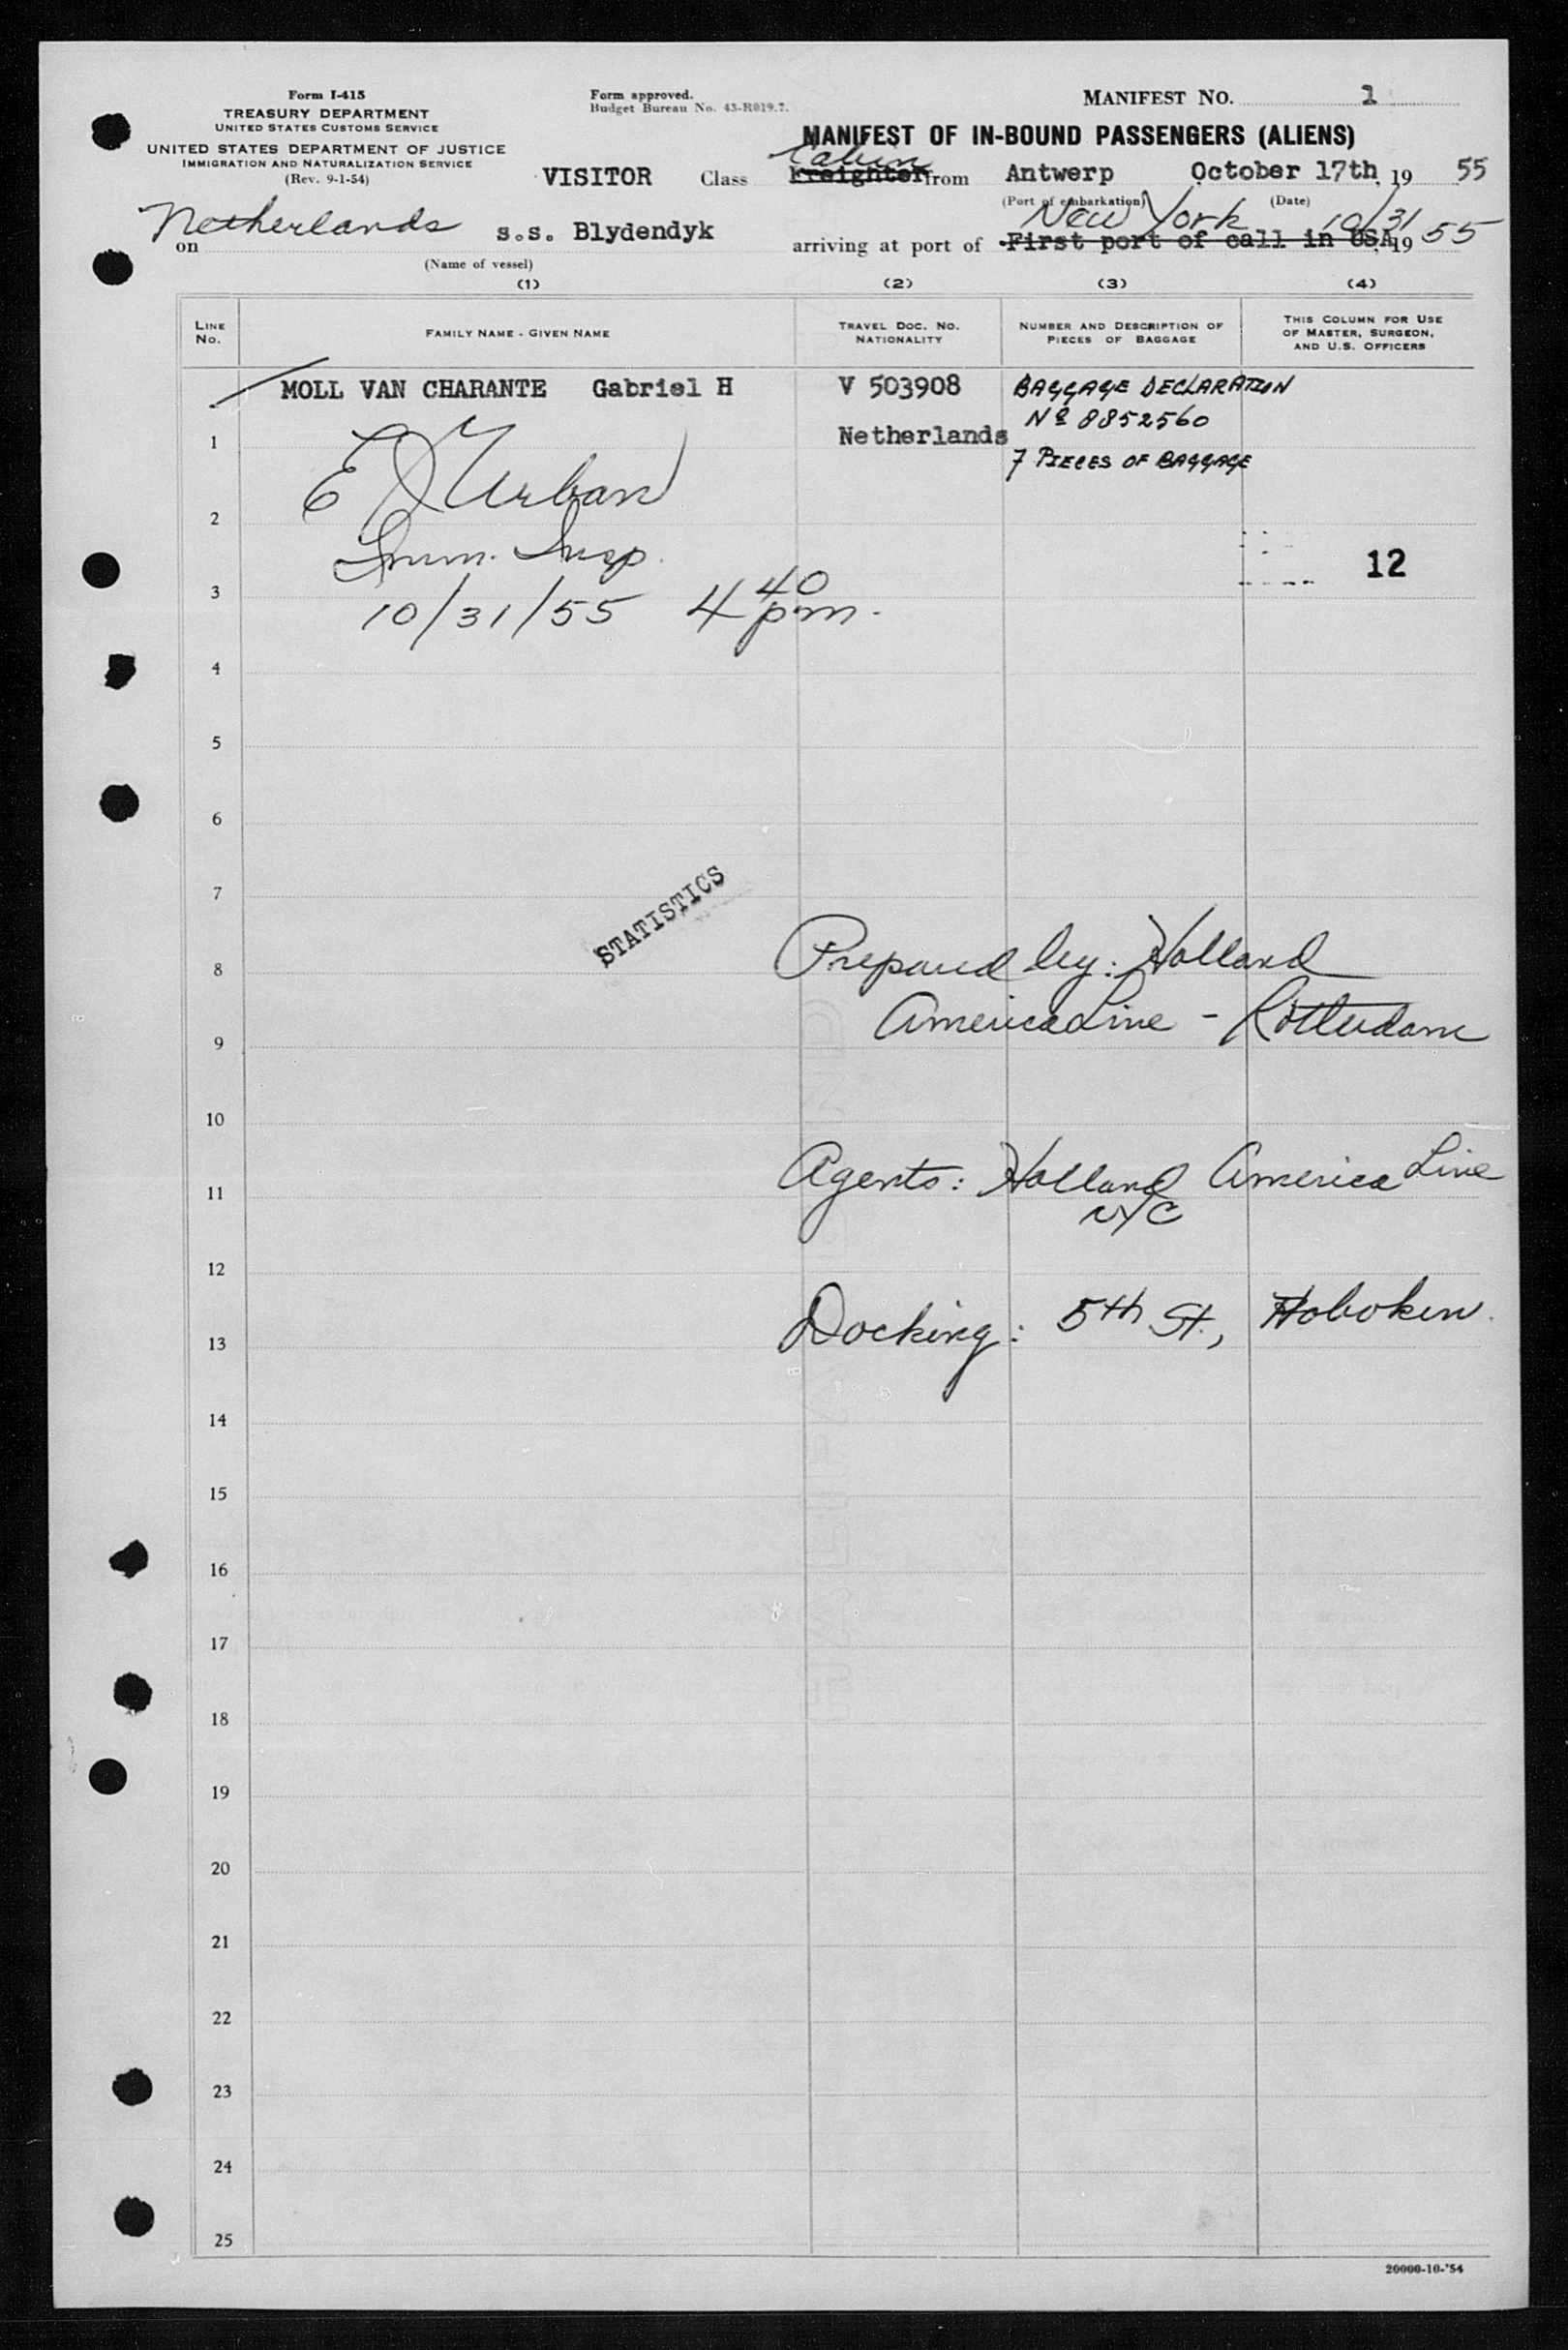 Form I-415
TREASURY DEPARTMENT
UNITED STATES CUSTOMS SERVICE
UNITED STATES DEPARTMENT OF JUSTICE
IMMIGRATION AND NATURALIZATION SERVICE
(Rev. 9-1-54)
Form approved.
Budget Bureau No. 43-R019.7.
MANIFEST NO. 1
MANIFEST OF IN-BOUND PASSENGERS (ALIENS)
Cabin
VISITOR Class Freighter from Antwerp October 17th, 19 55
(Port of embarkation) (Date)
Netherlands New York 10/31
on s.s. Blydendyk arriving at port of First port of call in USA, 19 55
(Name of vessel)
(1) (2) (3) (4)
LINE NO.
FAMILY NAME - GIVEN NAME
TRAVEL DOC. NO.
NATIONALITY
NUMBER AND DESCRIPTION OF
PIECES OF BAGGAGE
THIS COLUMN FOR USE
OF MASTER, SURGEON,
AND U.S. OFFICERS
MOLL VAN CHARANTE Gabriel H V 503908 BAGGAGE DECLARATION
Nº 8852560
1 Netherlands
7 PIECES OF BAGGAGE
E J Urban
2
Imm. Insp.
12
3
10/31/55 4 40 pm.
4
5
6
7
STATISTICS
8 Prepared by: Holland
9 America Line - Rotterdam
10
11 Agents: Holland America Line
NYC
12
13 Docking: 5th St., Hoboken.
14
15
16
17
18
19
20
21
22
23
24
25
20000-10-'54